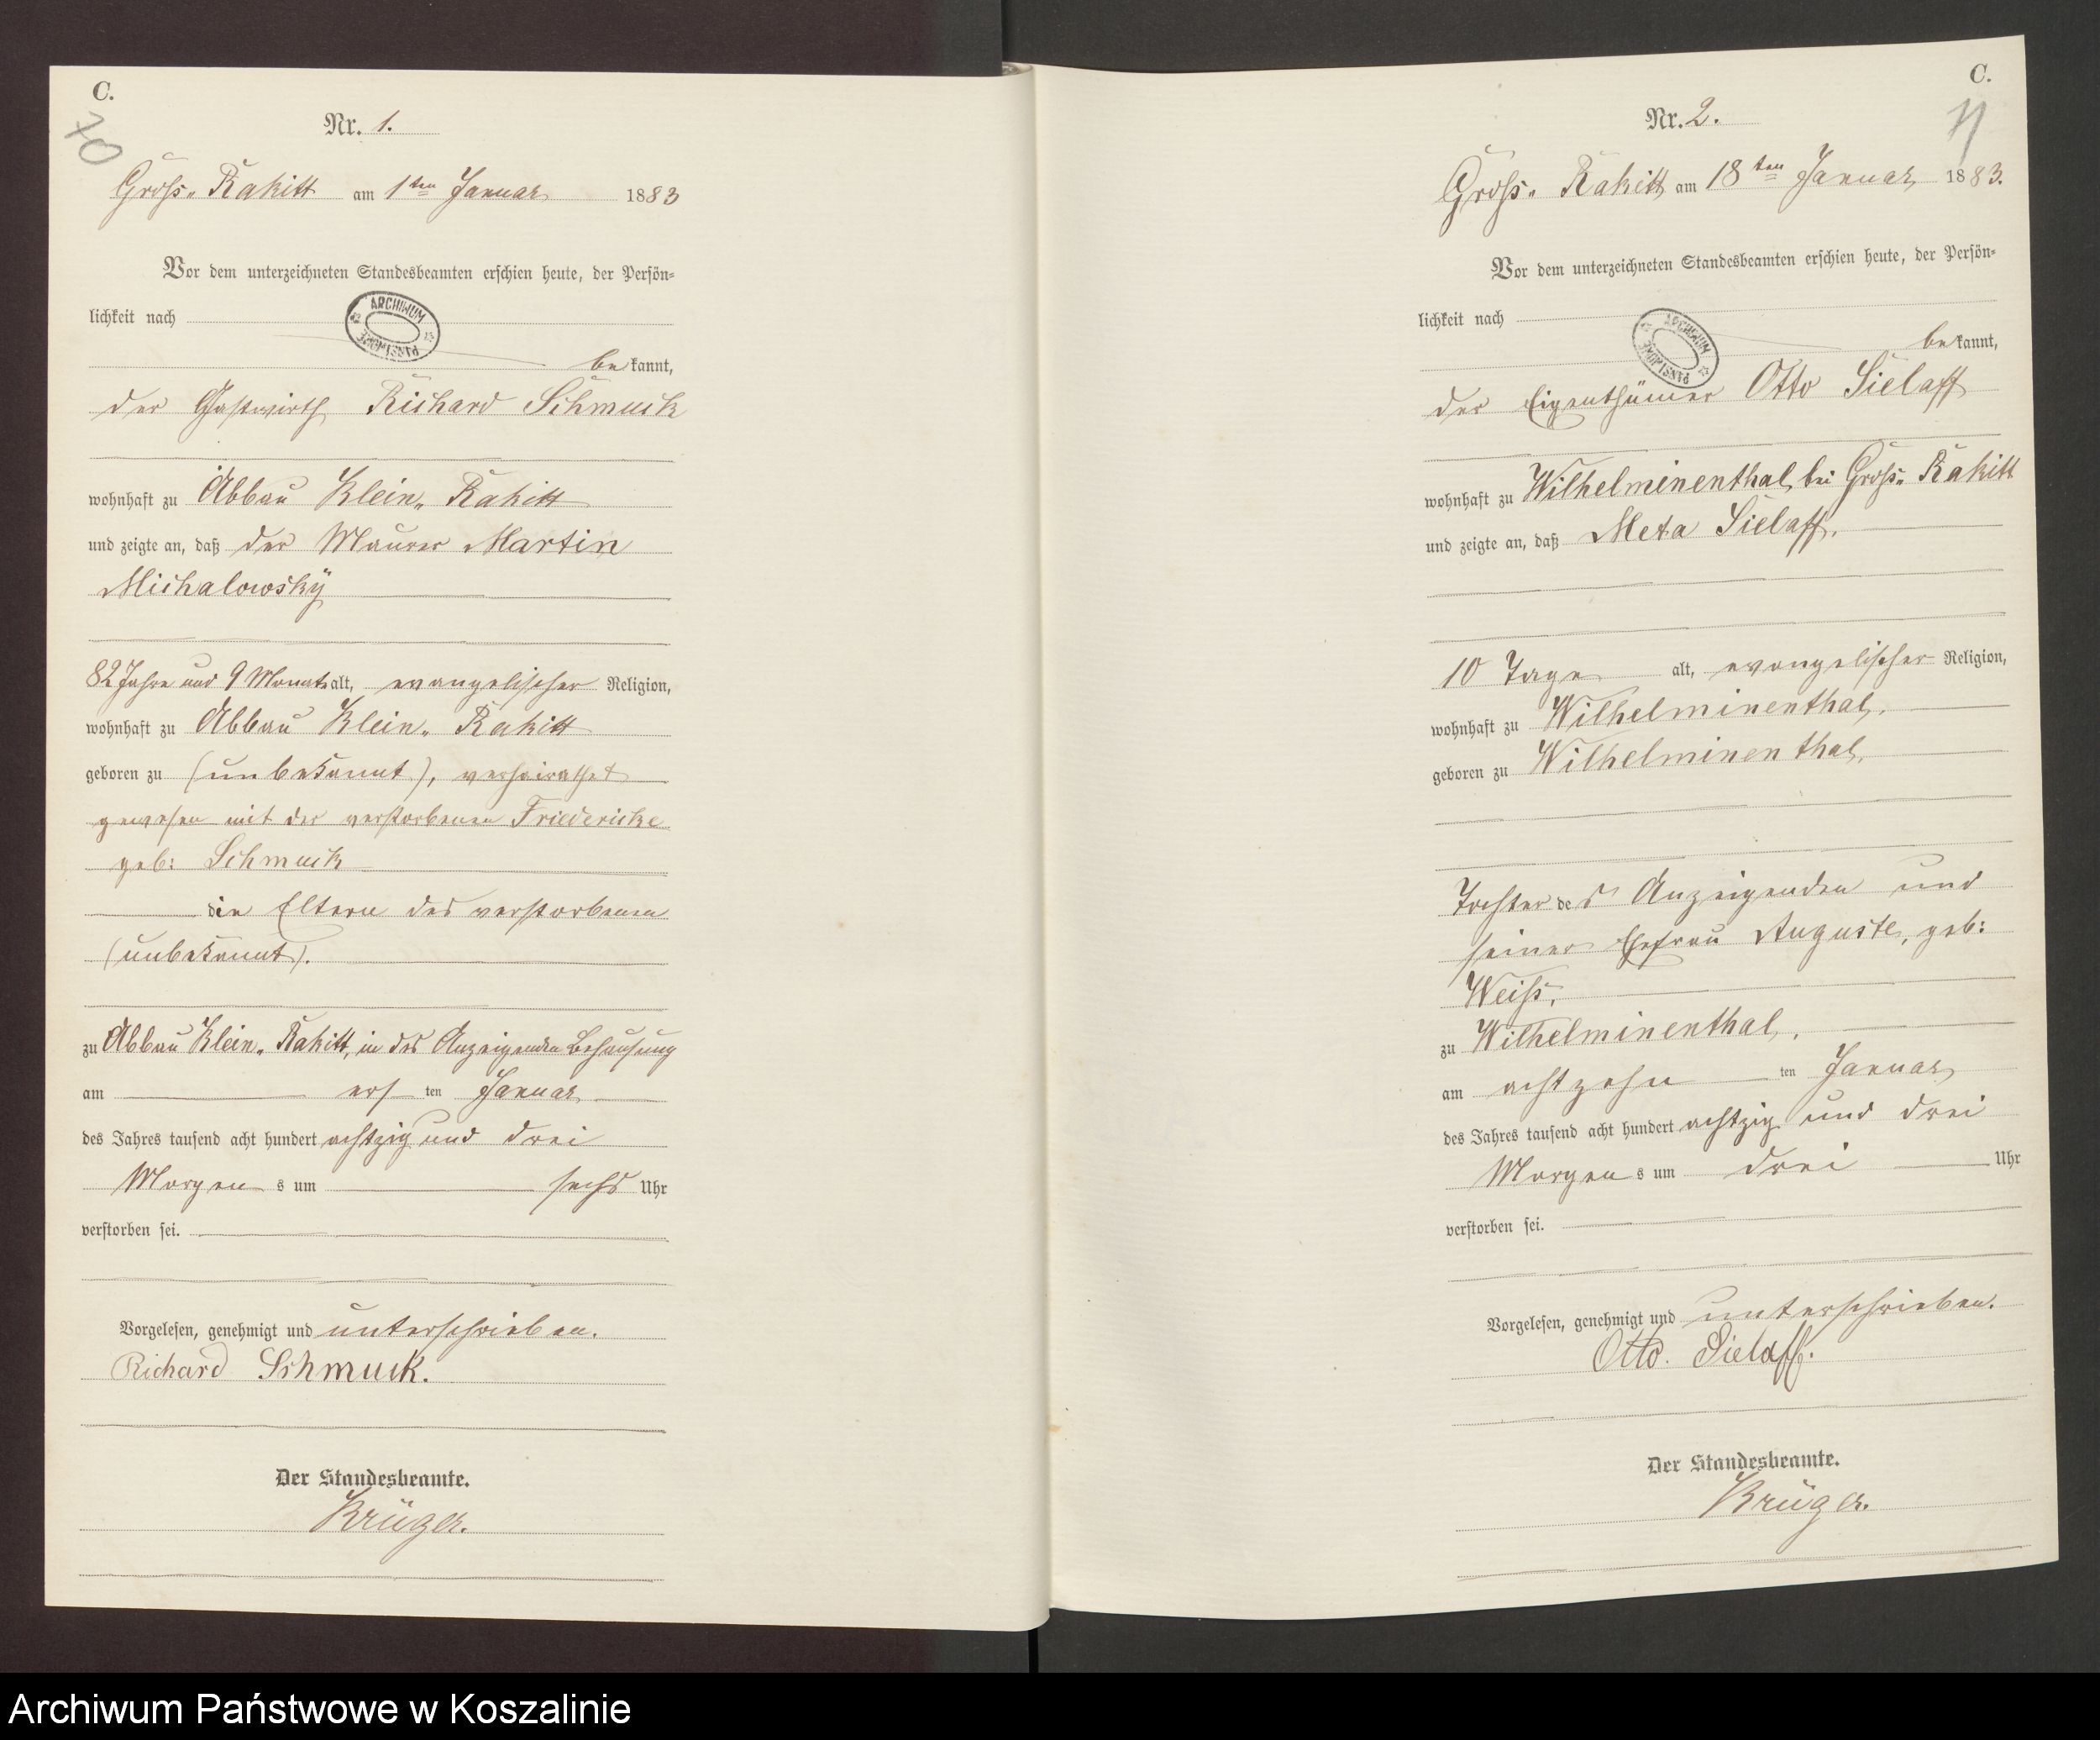 C.
Nr. 1.
Gross-Rakitt am 1ten Januar 1883
Vor dem unterzeichneten Standesbeamten erschien heute, der Persön=
lichkeit nach
bekannt,
der Gastwirth Richard Schmuck
wohnhaft zu Abbau Klein-Rakitt
und zeigte an, daß der Maurer Martin
Michalowsky
82 Jahre und 9 Monate alt, evangelischer Religion,
wohnhaft zu Abbau Klein-Rakitt
geboren zu (unbekannt), verheirathet
gewesen mit der verstorbenen Friedericke
geb: Schmuck
die Eltern des verstorbenen
(unbekannt).
zu Abbau Klein-Rakitt, in des Anzeigenden Behausung
am ersten Januar
des Jahres tausend acht hundert achtzig und drei
Morgens um sechs Uhr
verstorben sei.
Vorgelesen, genehmigt und unterschrieben.
Richard Schmuck.
Der Standesbeamte.
Krüger.
ARCHIWUM
C.
Nr. 2.
Gross-Rakitt am 18ten Januar 1883.
Vor dem unterzeichneten Standesbeamten erschien heute, der Persön=
lichkeit nach
bekannt,
der Eigenthümer Otto Sielaff
wohnhaft zu Wilhelminenthal, bei Gross-Rakitt
und zeigte an, daß Meta Sielaff,
10 Tage alt, evangelischer Religion,
wohnhaft zu Wilhelminenthal,
geboren zu Wilhelminenthal,
Tochter des Anzeigenden und
seiner Ehefrau Auguste, geb:
Weiss,
zu Wilhelminenthal,
am achtzehnten Januar
des Jahres tausend acht hundert achtzig und drei
Morgens um drei Uhr
verstorben sei.
Vorgelesen, genehmigt und unterschrieben.
Otto. Sielaff.
Der Standesbeamte.
Krüger.
ARCHIWUM
Archiwum Państwowe w Koszalinie